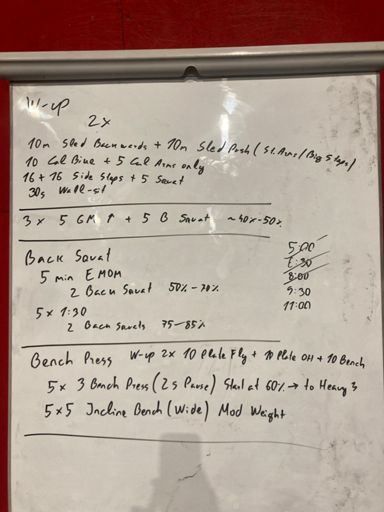 W-up
2x
10m Sled Backwards + 10m Sled Push (St. Arms/Big Steps)
10 Cal Bike + 5 Cal Arms only
16 + 16 Side Steps + 5 Squat
30s Wall-sit
3 x 5 GM ↑ + 5 B Squat ~40%-50%
Back Squat
5 min EMOM
2 Back Squat 50%-70%
5 x 1:30
2 Back Squats 75-85%
5:00
6:30
8:00
9:30
11:00
Bench Press W-up 2x 10 Plate Fly + 10 Plate OH + 10 Bench
5x 3 Bench Press (2s Pause) Start at 60% → to Heavy 3
5x5 Incline Bench (Wide) Mod Weight